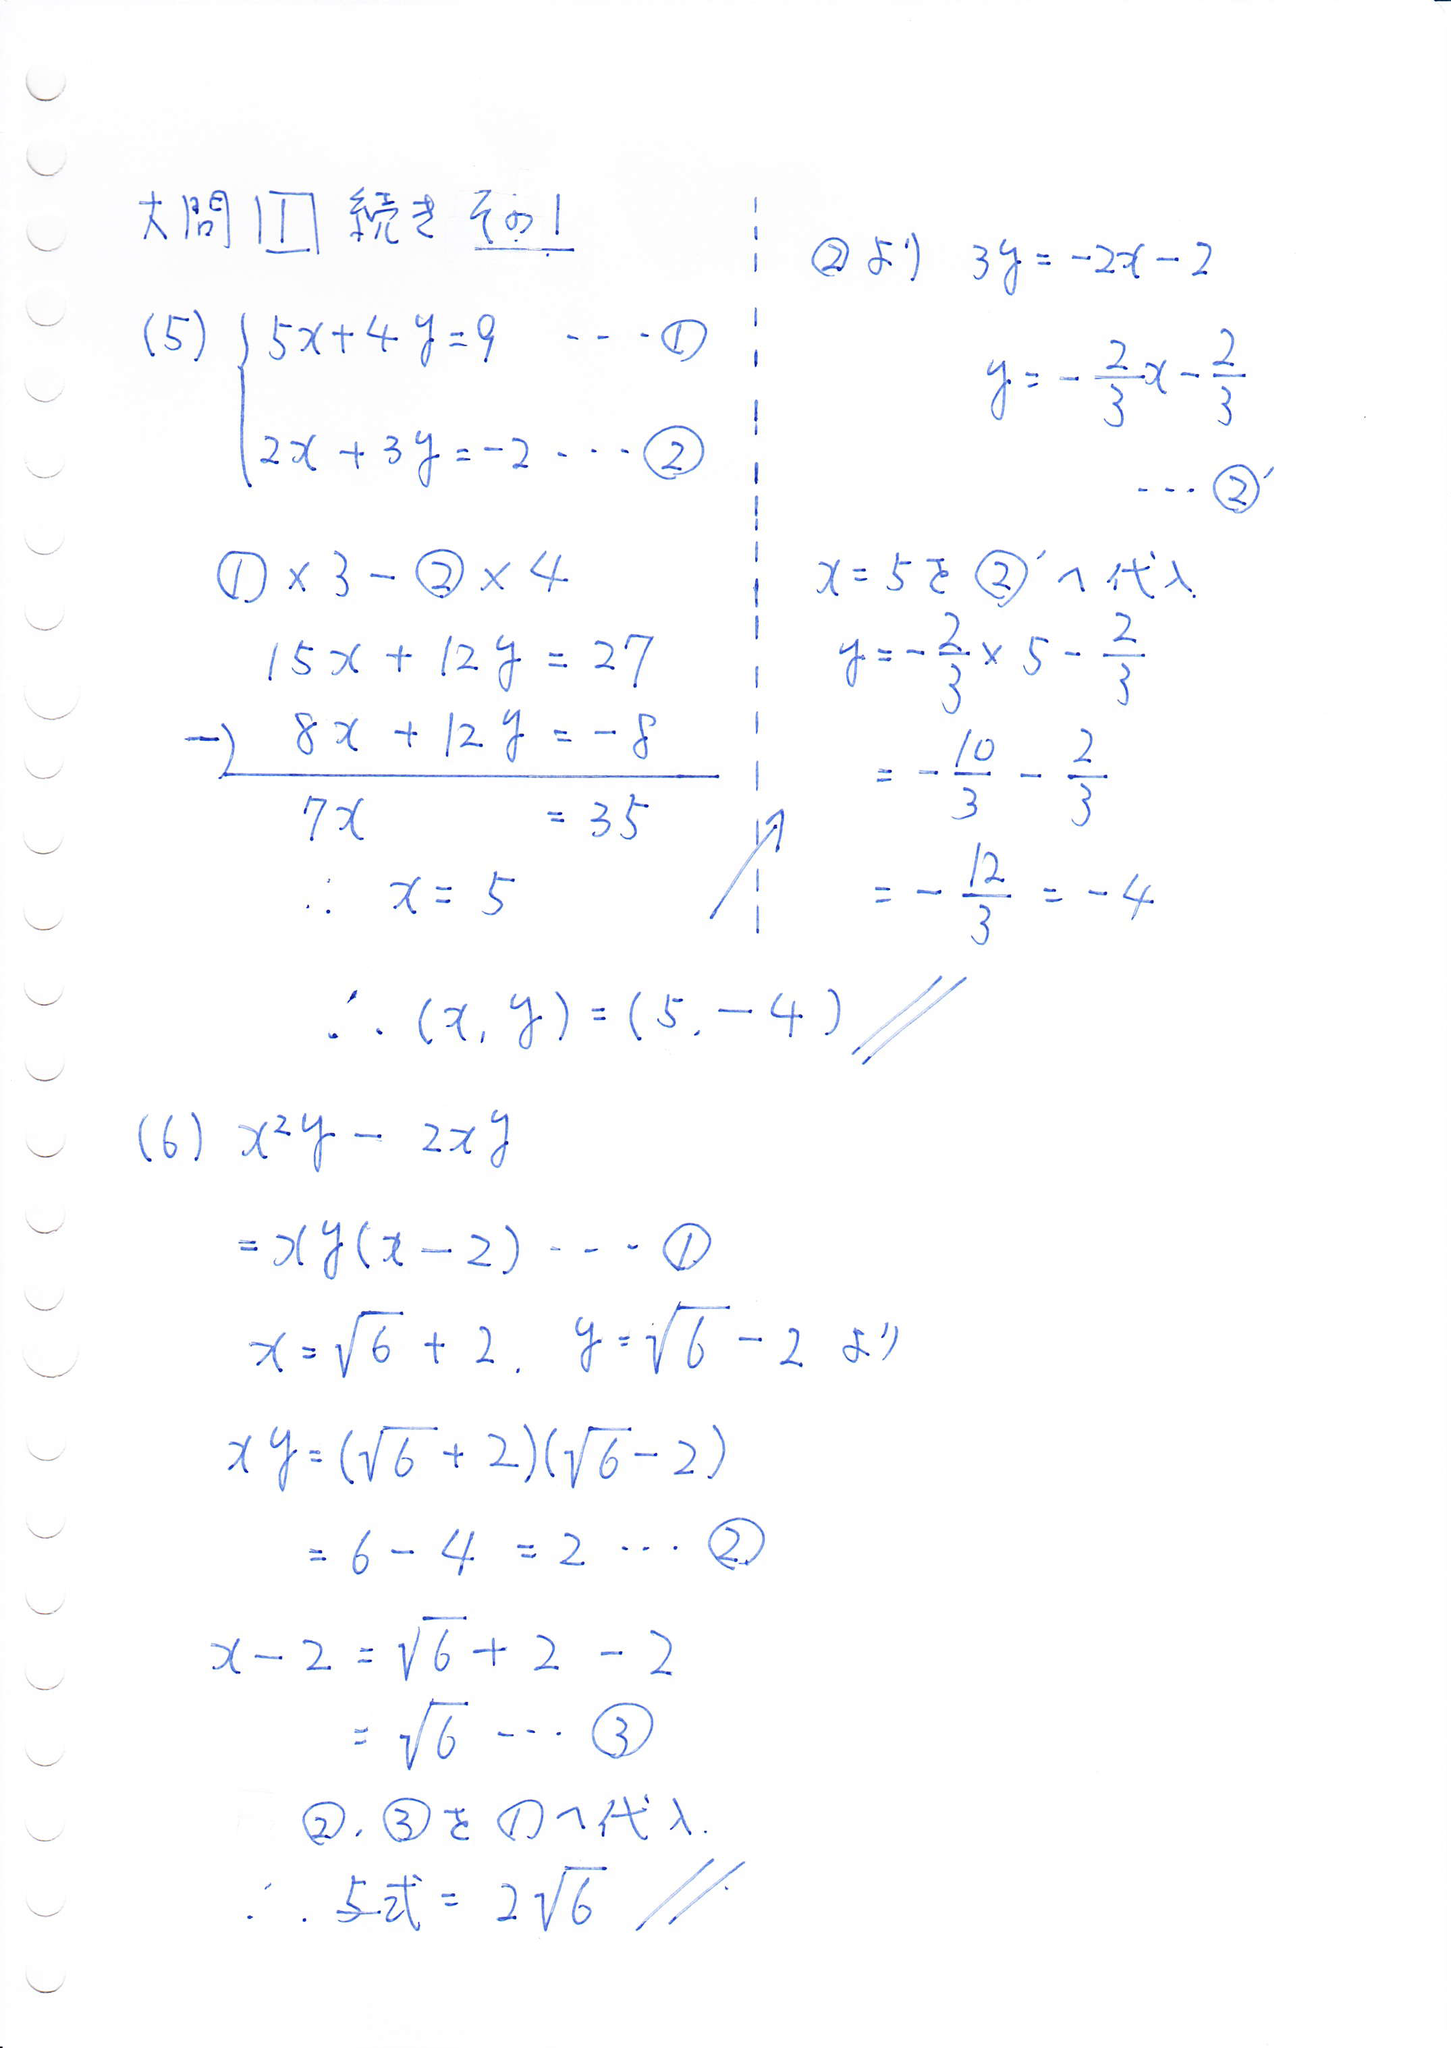 大問Ⅱ 続き その1
(5) { 5x+4y=9 ---①
2x+3y=-2 --- ②
①×3-②×4
15x+12y=27
-) 8x+12y=-8
7x =35
∴ x=5
②より 3y=-2x-2
y=-2/3x-2/3
--- ②'
x=5を②'へ代入
y=-2/3×5-2/3
=-10/3-2/3
=-12/3=-4
∴ (x, y)=(5, -4) //
(6) x²y-2xy
=xy(x-2) ---- ①
x=√6+2, y=√6-2 より
xy=(√6+2)(√6-2)
=6-4=2 --- ②
x-2=√6+2-2
=√6 --- ③
②, ③を①へ代入.
∴ 与式=2√6 //